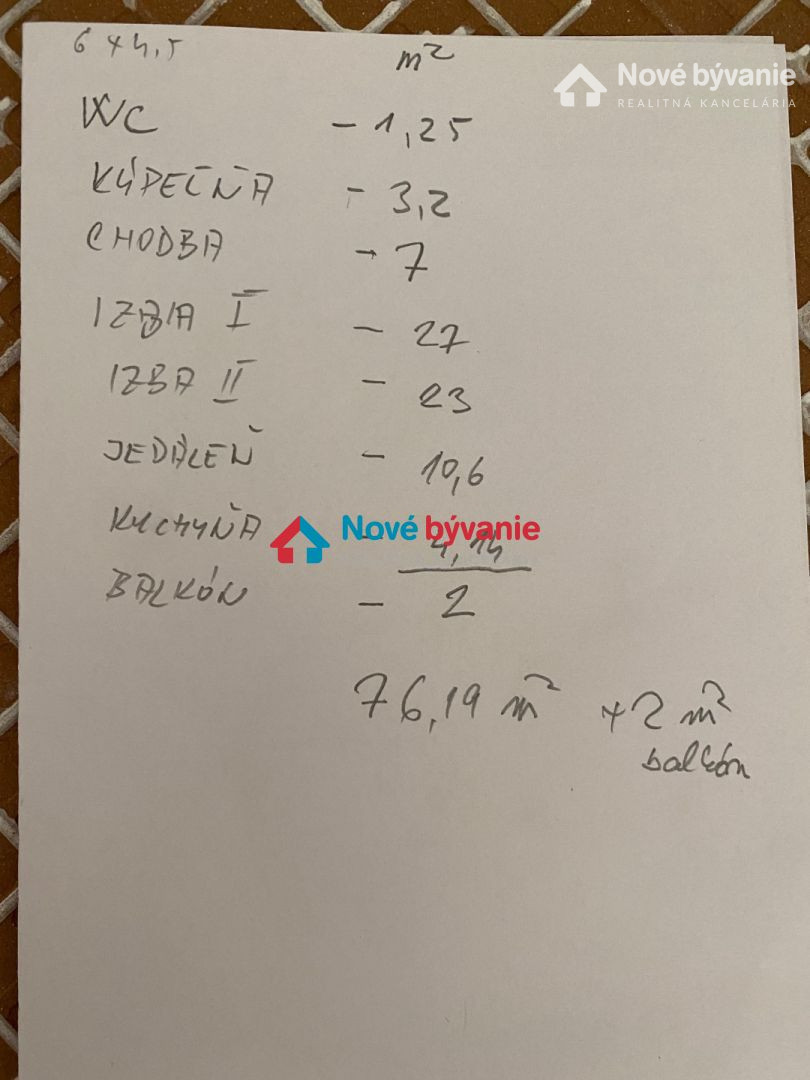 6 x 4,5
m²
Nové bývanie
REALITNÁ KANCELÁRIA
WC - 1,25
KÚPEĽŇA - 3,2
CHODBA - 7
IZBA I - 27
IZBA II - 23
JEDÁLEŇ - 10,6
KUCHYŇA - 4,14
Nové bývanie
BALKÓN - 2
76,19 m² + 2 m²
balkón